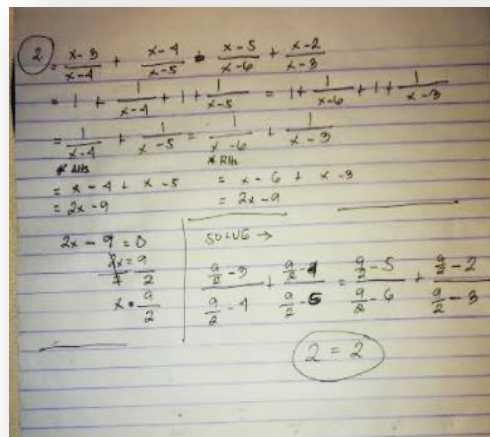 2. = x-3/x-4 + x-4/x-5 = x-5/x-6 + x-2/x-3
= 1 + 1/x-4 + 1 + 1/x-5 = 1 + 1/x-6 + 1 + 1/x-3
= 1/x-4 + 1/x-5 = 1/x-6 + 1/x-3
* LHS
= x-4 + x-5
= 2x-9
* RHS
= x-6 + x-3
= 2x-9
2x - 9 = 0
2x/2 = 9/2
x = 9/2
SOLVE →
9/2-3 / 9/2-4 + 9/2-4 / 9/2-5 = 9/2-5 / 9/2-6 + 9/2-2 / 9/2-3
2 = 2